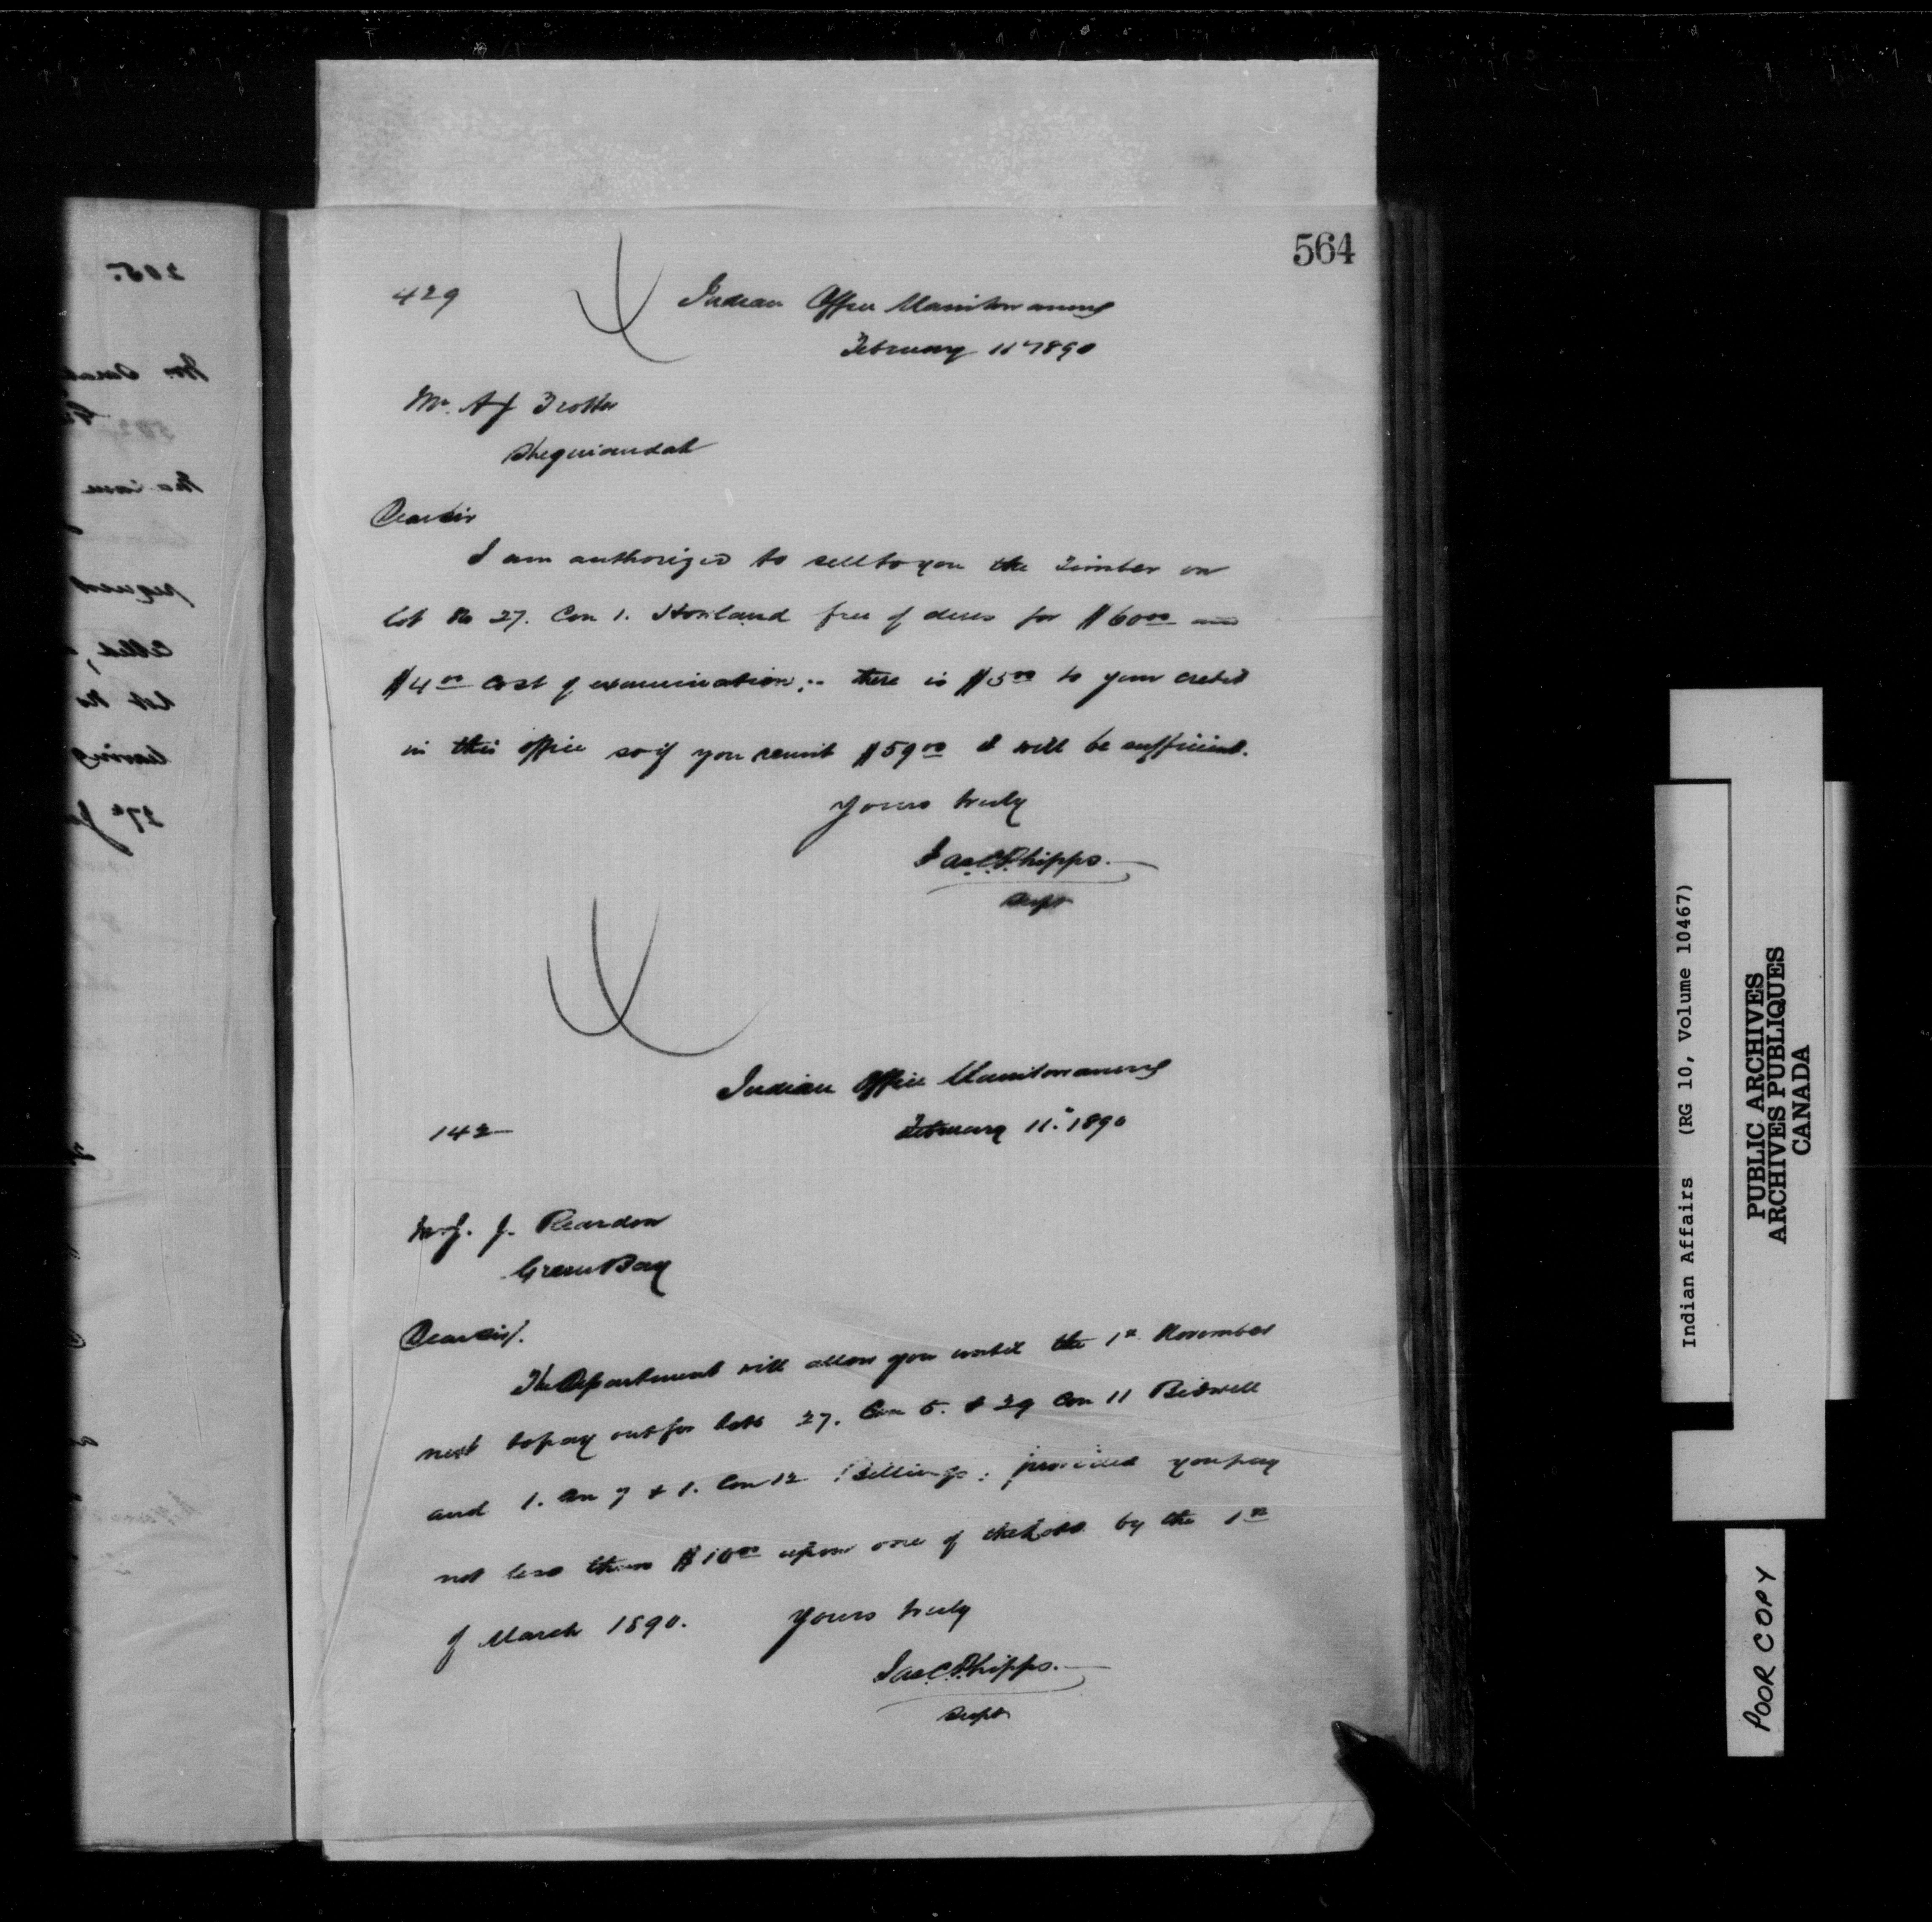 564
429
Indian Office Manitowaning
February 11" 1890
Mr. A J Trotter
Sheguiandah
Dear Sir
I am authorized to sell to you the Timber on
lot No 27. Con 1. Howland free of dues for $60.00 and
$4.00 cost of examination; - there is $5.00 to your credit
in this office so if you remit $59.00 it will be sufficient.
Yours truly
Jas. C. Phipps.
Supt
Indian Office Manitowaning
142
February 11." 1890
J. Reardon
Green Bay
Dear Sir/.
The Department will allow you until the 1st November
next to pay out for lots 27. Con 5. & 29 Con 11 Bidwell
and 1. Con 7 & 1. Con 12 Billings; provided you pay
not less than $10.00 upon one of the lots by the 1st
of March 1890.
Yours truly
Jas C. Phipps.
Supt
Indian Affairs (RG 10, Volume 10467)
PUBLIC ARCHIVES
ARCHIVES PUBLIQUES
CANADA
POOR COPY